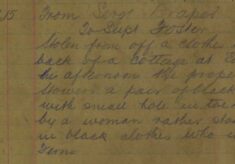 15 From Sergt Draper
To Supt Foster
Stolen from off a clothes
back of a cottage at
the afternoon the prope
a pair of black
with small hole in
by a woman rather
in black clothes who